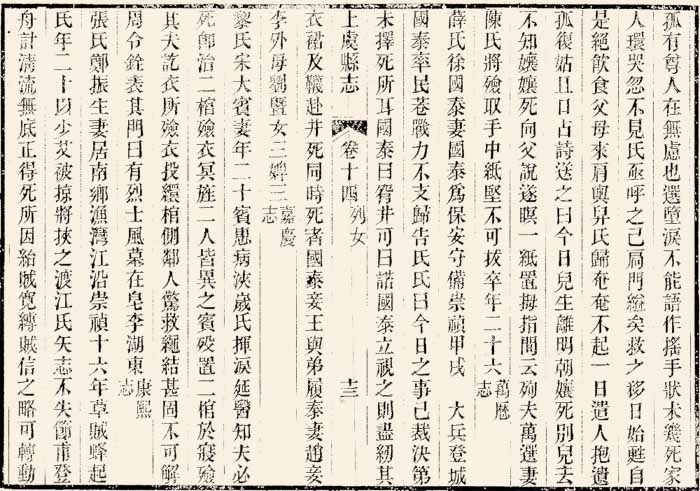 孤有尊人在無慮也選墮淚不能語作搖手狀未幾死家
人環哭忽不見氏亟呼之已扃門縊矣救之移日始甦自
是絕飲食父母來肩輿舁氏歸奄奄不起一日遣人抱遺
孤復姑且口占詩送之曰今日兒生離明朝孃死別兒去
不知孃孃死向父說遂瞑一紙置拇指間云殉夫萬選妻
陳氏將殮取手中紙堅不可拔卒年二十六萬曆志
薛氏徐國泰妻國泰爲保安守備崇禎甲戌 大兵登城
國泰率民巷戰力不支歸告氏氏曰今日之事已裁決第
未擇死所耳國泰曰眢井可曰諾國泰立視之則盡紉其
上虞縣志 卷十四 列女 十三
衣裙及襪赴井死同時死者國泰妾王與弟履泰妻趙妾
李外母劉暨女三婢三嘉慶志
黎氏宋大賓妻年二十賓患病浹歲氏揮淚延醫知夫必
死卽治二棺殮衣冥旌二人皆異之賓歿置二棺於寢殮
其夫訖衣所殮衣投繯棺側鄰人驚救繩結甚固不可解
周令銓表其門曰有烈士風墓在皂李湖東康熙志
張氏鄭振生妻居南鄉漁灣江沿崇禎十六年草賊蜂起
氏年二十以少艾被掠將挾之渡江氏矢志不失節甫登
舟計淸流無底正得死所因紿賊寬縛賊信之略可轉動